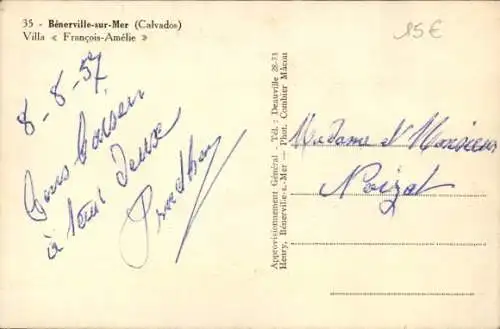 35 - Bénerville-sur-Mer (Calvados)
Villa « François-Amélie »
15€
8-8-57
Bons Baisers
à tous deux
Prudhon
Approvisionnement Général - Tél. : Deauville 28-73
Henry, Bénerville-s.-Mer — Phot. Combier Mâcon
Madame et Monsieur
Noizat